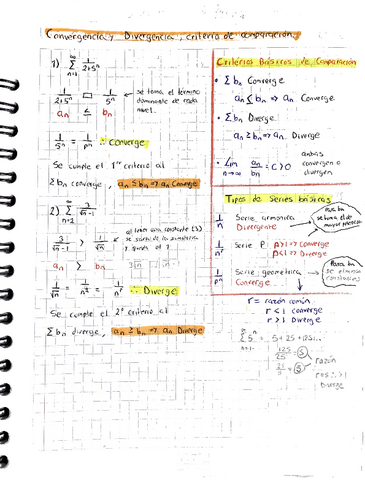 Convergencia y Divergencia, criterio de comparación
1) ∞ Σ n=1 1/2+5ⁿ
1/2+5ⁿ □ 1/5ⁿ ← se toma el término
dominante de cada
nivel.
an ≤ bn
1/5ⁿ = 1/pⁿ ∴ Converge
Se cumple el 1er criterio al
Σ bn converge, an ≤ bn ⇒ an Converge
2) ∞ Σ n=2 3/√n-1
3/√n-1 > 1/√n ← al tener una constante (3)
se saca de la sumatoria
y queda el
an > bn
1/√n = 1/n^½ = 1/nᵖ ∴ Diverge
Se cumple el 2º criterio al
Σ bn diverge, an ≥ bn ⇒ an Diverge
Criterios Básicos de Comparación
• Σ bn Converge
an ≤ bn ⇒ an Converge
• Σ bn Diverge
an ≥ bn ⇒ an Diverge
• Lim n→∞ an/bn = C > 0 ambas
convergen o
divergen
Tipos de Series básicas
1/n Serie armónica
Divergente
1/nᵖ Serie P p>1 ⇒ Converge
p<1 ⇒ Diverge
1/pⁿ Serie geométrica
Converge
Para bn
se toma el de
mayor
Para bn
se eliminan
constantes
r = razón común
r < 1 converge
r > 1 Diverge
∞ Σ n=1 5ⁿ = 5 + 25 + 125...
125/25 = 5
25/5 = 5 razón
r=5 ∴ >1
Diverge